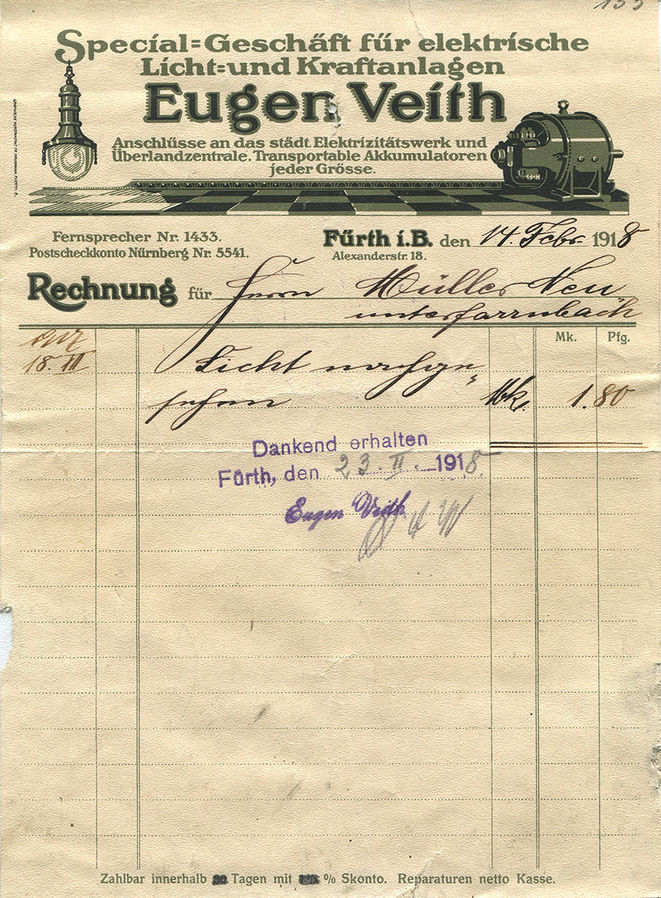 Special=Geschäft für elektrische
Licht=und Kraftanlagen
Eugen Veith
Anschlüsse an das städt. Elektrizitätswerk und
Überlandzentrale. Transportable Akkumulatoren
jeder Grösse.
Fernsprecher Nr. 1433.
Postscheckkonto Nürnberg Nr. 5541.
Fürth i.B. den 14. Febr. 1918
Alexanderstr. 18.
Rechnung für Herrn Müller Neu
unterfarrnbach
Mk. Pfg.
1917
18. III Licht nachge
sehen Mk. 1.80
Dankend erhalten
Fürth, den 23. II. 1918
Eugen Veith
Zahlbar innerhalb Tagen mit % Skonto. Reparaturen netto Kasse.